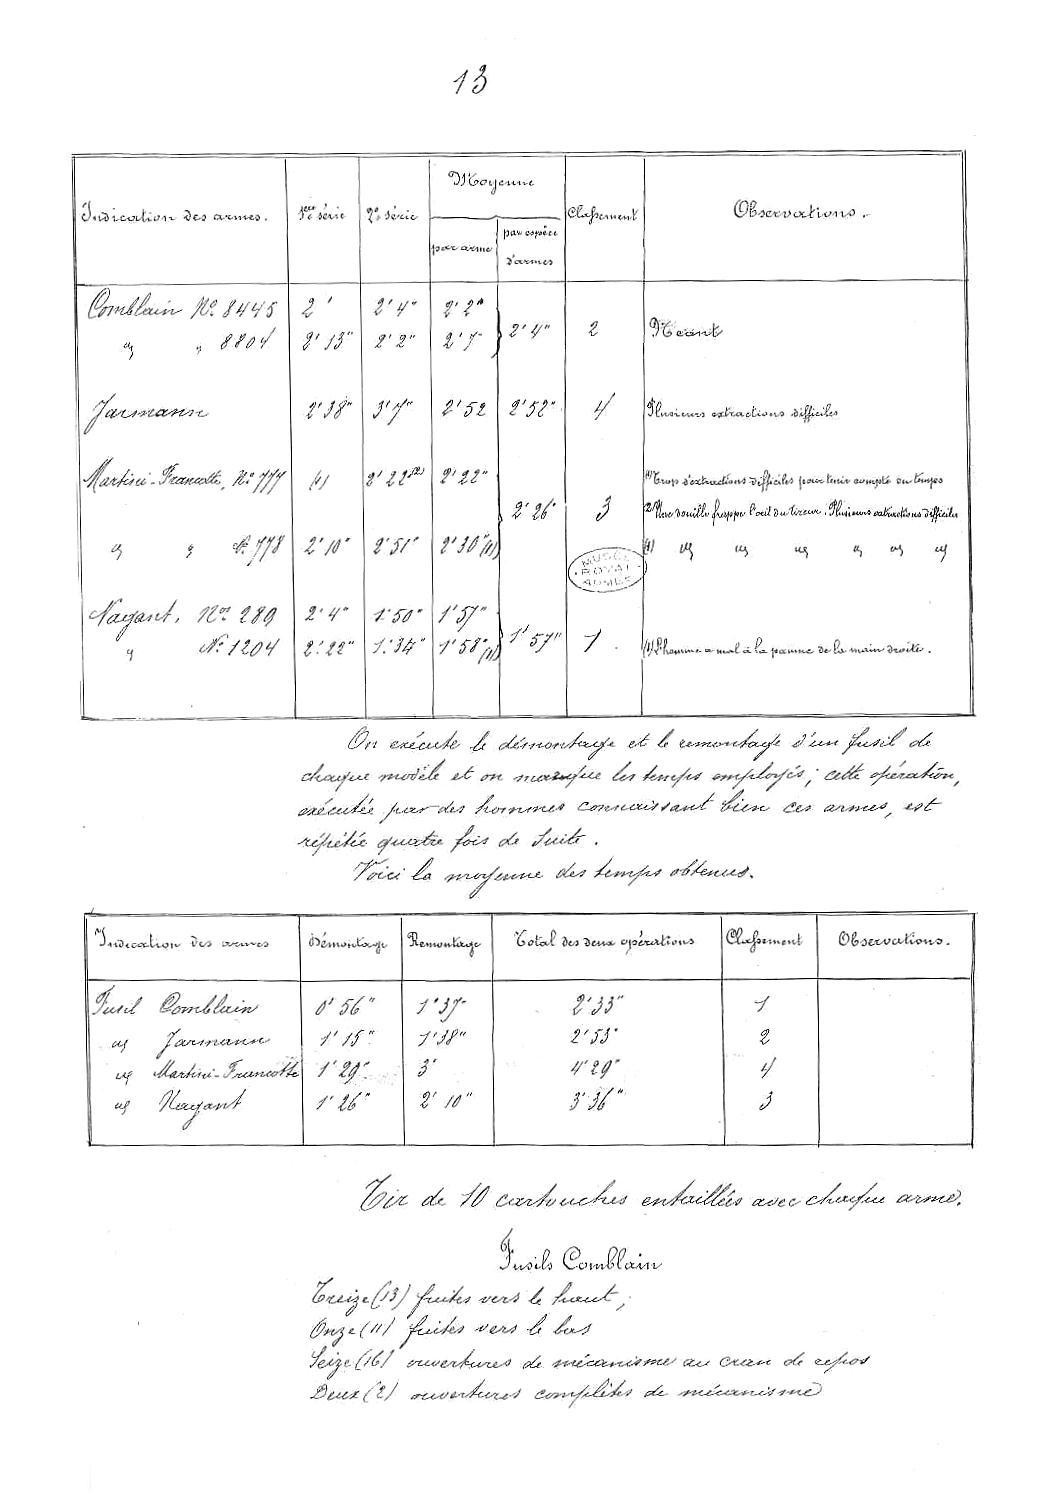 13
Moyenne
Indication des armes. 1ère série 2e série Classement Observations.
par arme par espèce d'armes
Comblain No 8445 2' 2' 4" 2' 2"
" " 8804 2' 13" 2' 2" 2' 7" 2' 4" 2 Néant
Jarmann 2' 38" 3' 7" 2' 52 2' 52" 4 Plusieurs extractions difficiles
Martini-Francotte, No 777 (1) 2' 22" (2) 2' 22" (1) Trop d'extractions difficiles pour tenir compte du temps
2' 26" 3 (2) Une douille frappe l'œil du tireur. Plusieurs extractions difficiles
" " No 778 2' 10" 2' 51" 2' 30" (1) (1) " " " " " "
MUSÉE ROYAL ARMES
Nagant. No 289 2' 4" 1' 50" 1' 57"
" No 1204 2' 22" 1' 34" 1' 58" (1) 1' 57" 1. (1) L'homme a mal à la paume de la main droite.
On exécute le démontage et le remontage d'un fusil de
chaque modèle et on marque les temps employés; cette opération,
exécutée par des hommes connaissant bien ces armes, est
répétée quatre fois de suite.
Voici la moyenne des temps obtenus.
Indication des armes Démontage Remontage Total des deux opérations Classement Observations.
Fusil Comblain 0' 56" 1' 37" 2' 33" 1
" Jarmann 1' 15" 1' 38" 2' 53" 2
" Martini-Francotte 1' 29" 3' 4' 29" 4
" Nagant 1' 26" 2' 10" 3' 36" 3
Tir de 10 cartouches entaillées avec chaque arme.
Fusils Comblain
Treize (13) fuites vers le haut;
Onze (11) fuites vers le bas
Seize (16) ouvertures de mécanisme au cran de repos
Deux (2) ouvertures complètes de mécanisme